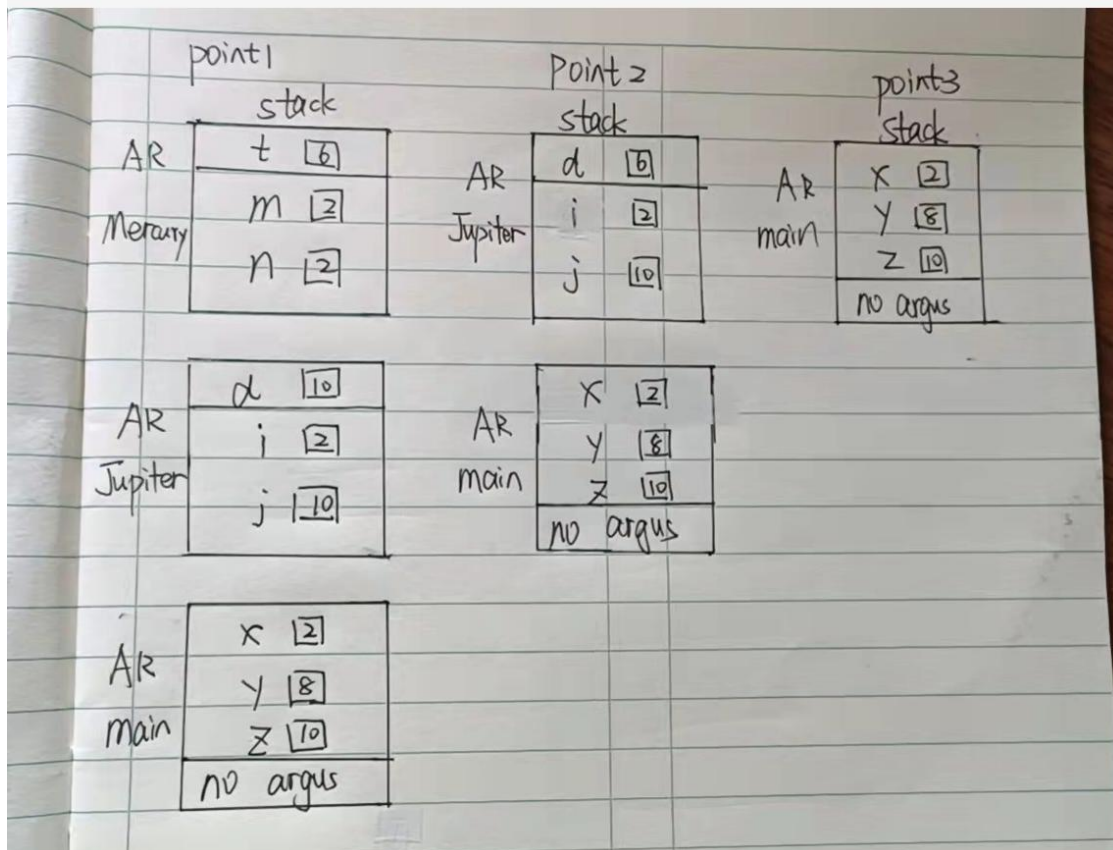 point1
stack
AR
Mercury
t 6
m 2
n 2
AR
Jupiter
d 10
i 2
j 10
AR
main
x 2
y 8
z 10
no argus
Point 2
stack
AR
Jupiter
d 6
i 2
j 10
AR
main
x 2
y 8
z 10
no argus
point3
stack
AR
main
x 2
y 8
z 10
no argus